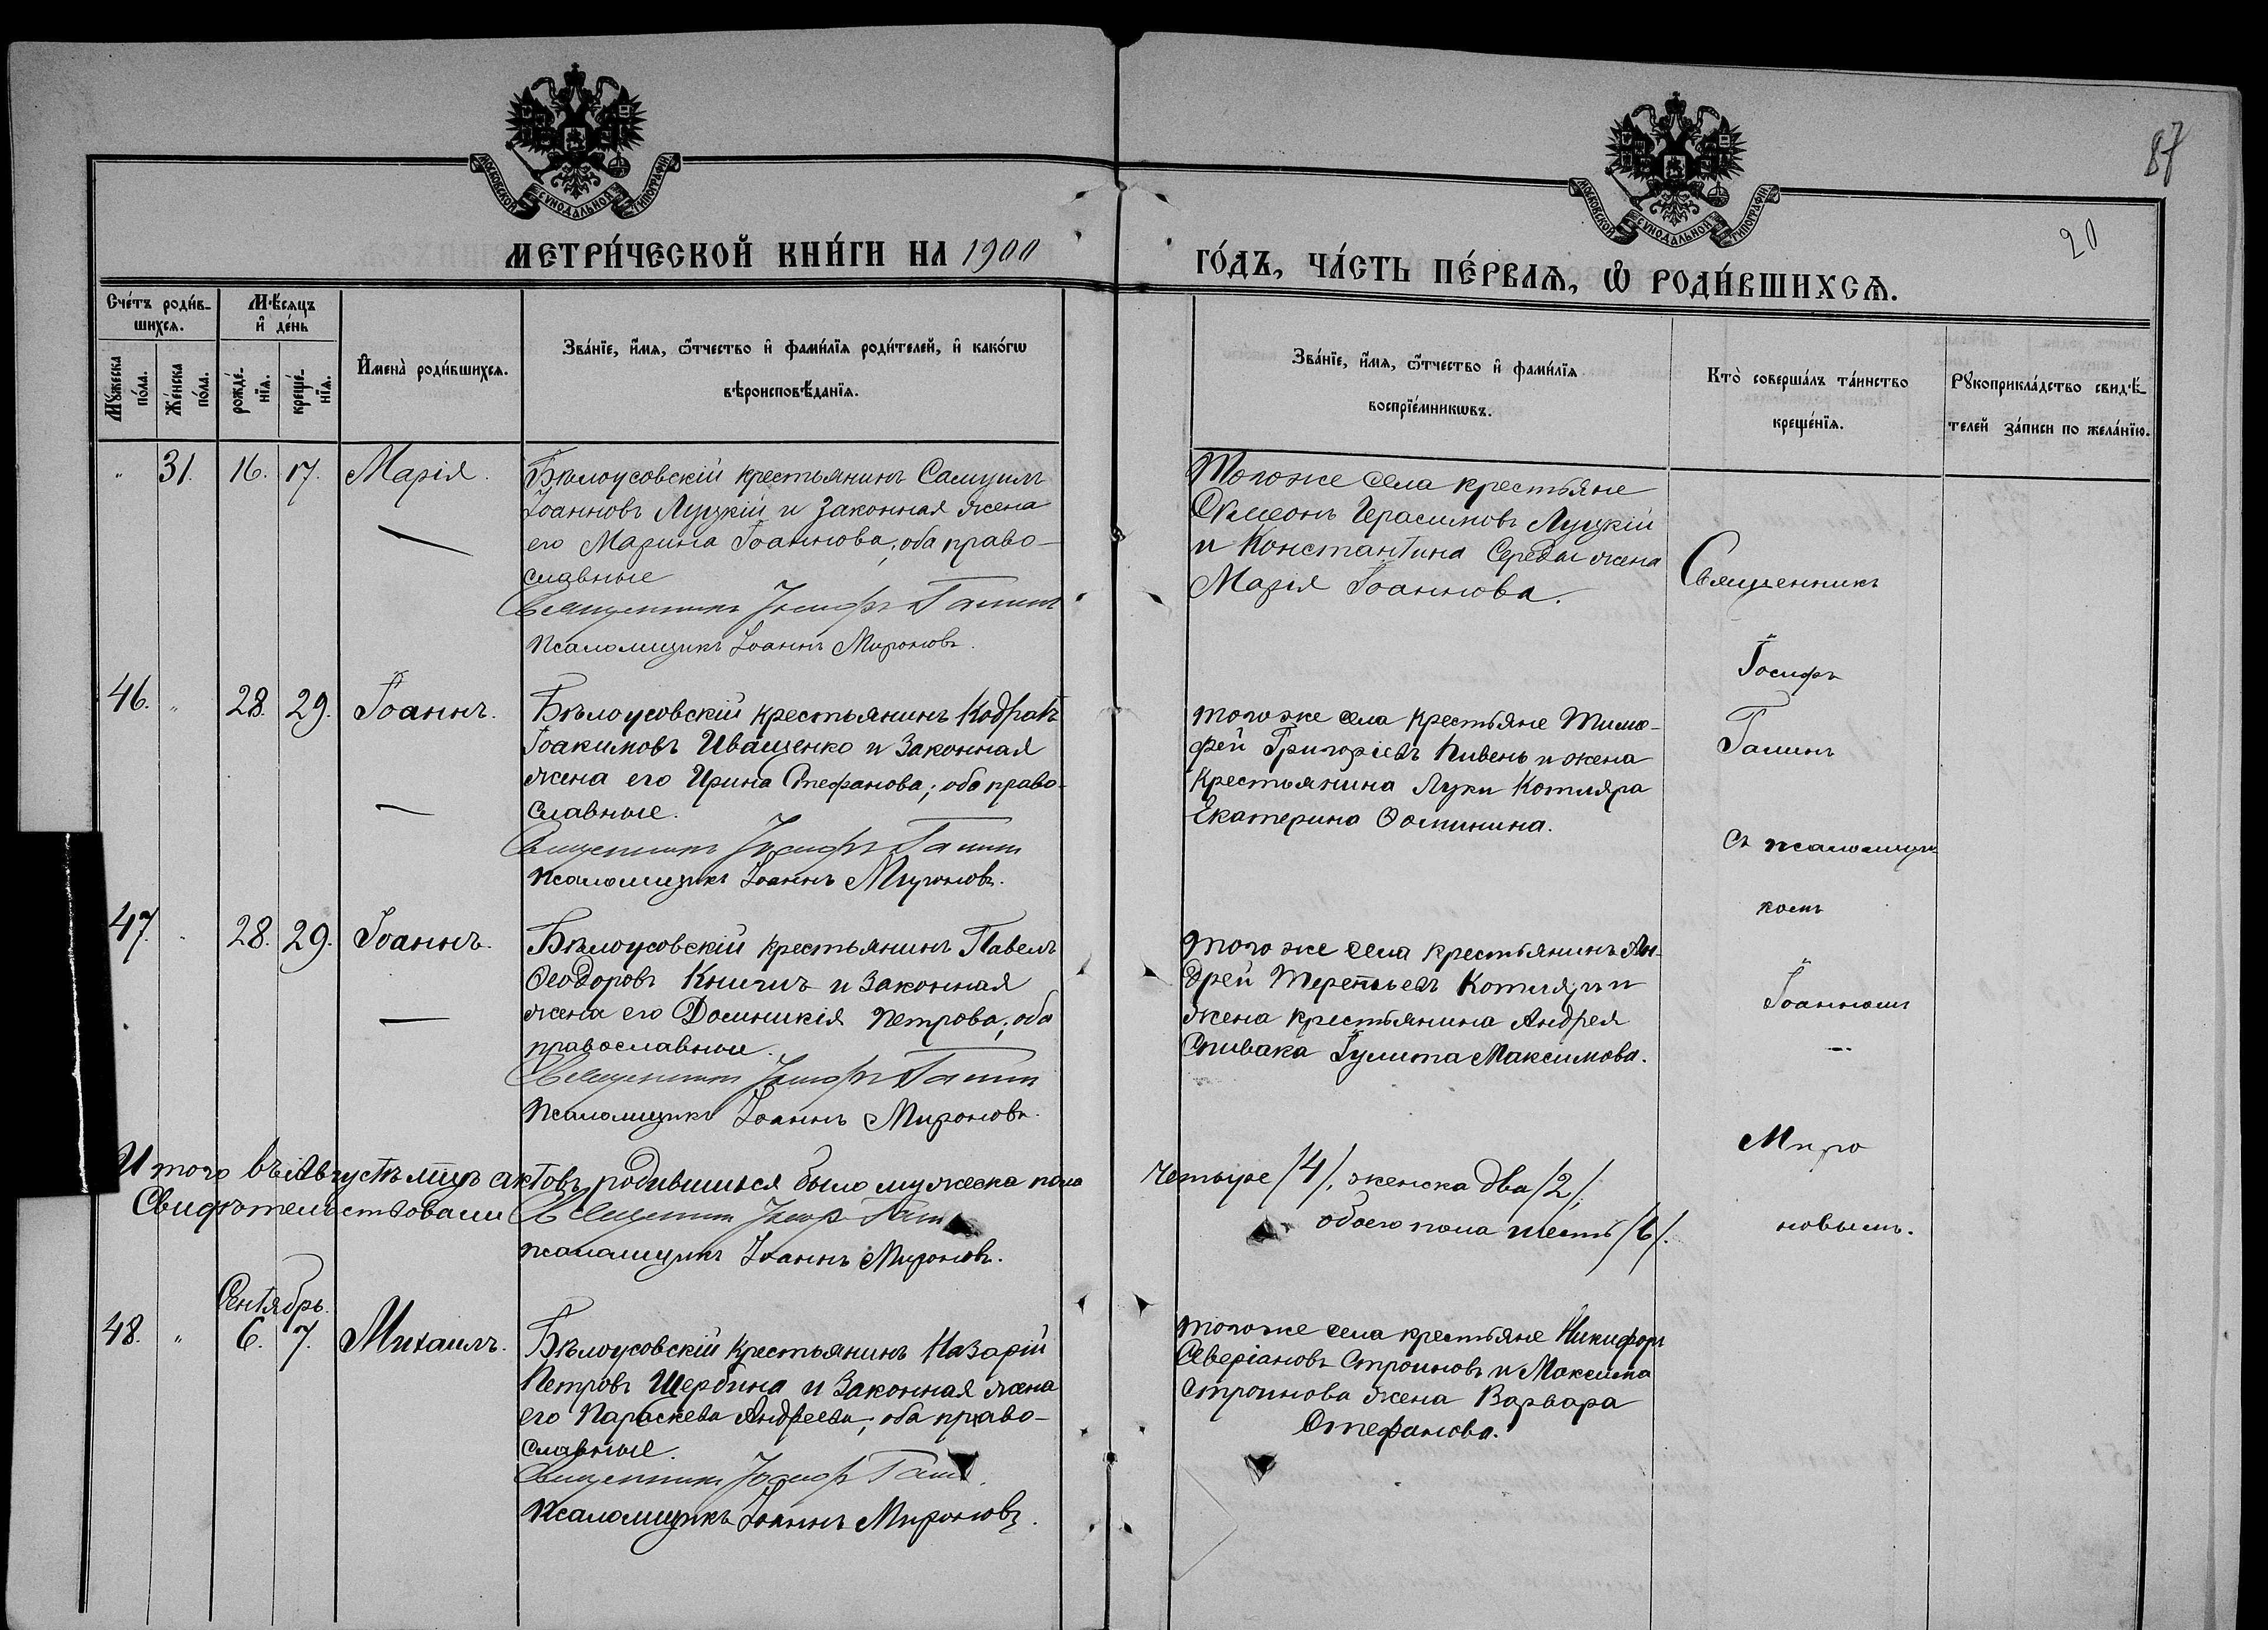 87
20
МОСКОВСКОЙ СѴНОДАЛЬНОЙ ТИПОГРАФІИ
МОСКОВСКОЙ СѴНОДАЛЬНОЙ ТИПОГРАФІИ
МЕТРИ́ЧЕСКОЙ КНИ́ГИ НА 1900
ГО́ДЪ, ЧА́СТЬ ПЕ́РВАѦ, Ѽ РОДИ́ВШИХСѦ.
Сче́тъ роди́в-
шихсѧ.
Мꙋ́жеска по́ла.
Же́нска по́ла.
Мѣ́сѧцъ
и҆ де́нь
рожде́-
нїѧ.
креще́-
нїѧ.
И҆мена̀ роди́вшихсѧ.
Зва́нїе, и҆́мѧ, ѻ҆́тчество и҆ фами́лїѧ роди́телей, и҆ како́гѡ
вѣроисповѣ́данїѧ.
Зва́нїе, и҆́мѧ, ѻ҆́тчество и҆ фами́лїѧ
воспрїе́мникѡвъ.
Кто̀ соверша́лъ та́инство
креще́нїѧ.
Рꙋкоприкла́дство свидѣ́-
телей за́писи по жела́нїю.
" 31. 16. 17. Марія.
Бѣлоусовскій крестьянинъ Самуилъ
Іоанновъ Луцкій и законная жена
его Марина Іоаннова; оба право-
славные
Священникъ Іосифъ Ганинъ
Псаломщикъ Іоаннъ Мироновъ.
Тогоже села крестьяне
Симеонъ Герасимовъ Луцкій
и Константина Середы жена
Марія Іоаннова.
46. " 28. 29. Іоаннъ.
Бѣлоусовскій крестьянинъ Кодратъ
Іоакимовъ Иващенко и законная
жена его Ирина Стефанова; оба право-
славные.
Священникъ Іосифъ Ганинъ
Псаломщикъ Іоаннъ Мироновъ.
того же села крестьяне Тимо-
фей Григоріевъ Пивень и жена
крестьянина Луки Котляра
Екатерина Ѳоминина.
47. " 28. 29. Іоаннъ.
Бѣлоусовскій крестьянинъ Павелъ
Ѳеодоровъ Книгичъ и законная
жена его Домникія Петрова; оба
православные.
Священникъ Іосифъ Ганинъ
Псаломщикъ Іоаннъ Мироновъ.
того же села крестьянинъ Ан-
дрей Терентьевъ Котляръ и
жена крестьянина Андрея
Спивака Іулита Максимова.
Священникъ
Іосифъ
Ганинъ
съ псаломщи-
комъ
Іоанномъ
Миро
новымъ.
Итого въ Августѣ мцѣ актовъ родившихся было мужеска пола
четыре /4/, женска два /2/,
Свидѣтельствовали Священникъ Іосифъ Ганинъ
обоего пола шесть /6/.
псаломщикъ Іоаннъ Мироновъ.
Сентябрь.
48. " 6. 7. Михаилъ.
Бѣлоусовскій крестьянинъ Назарій
Петровъ Щербина и законная жена
его Параскева Андреева; оба право-
славные.
Священникъ Іосифъ Ганинъ
Псаломщикъ Іоаннъ Мироновъ.
тогоже села крестьяне Никифоръ
Северіановъ Строиновъ и Максима
Строинова жена Варвара
Стефанова.